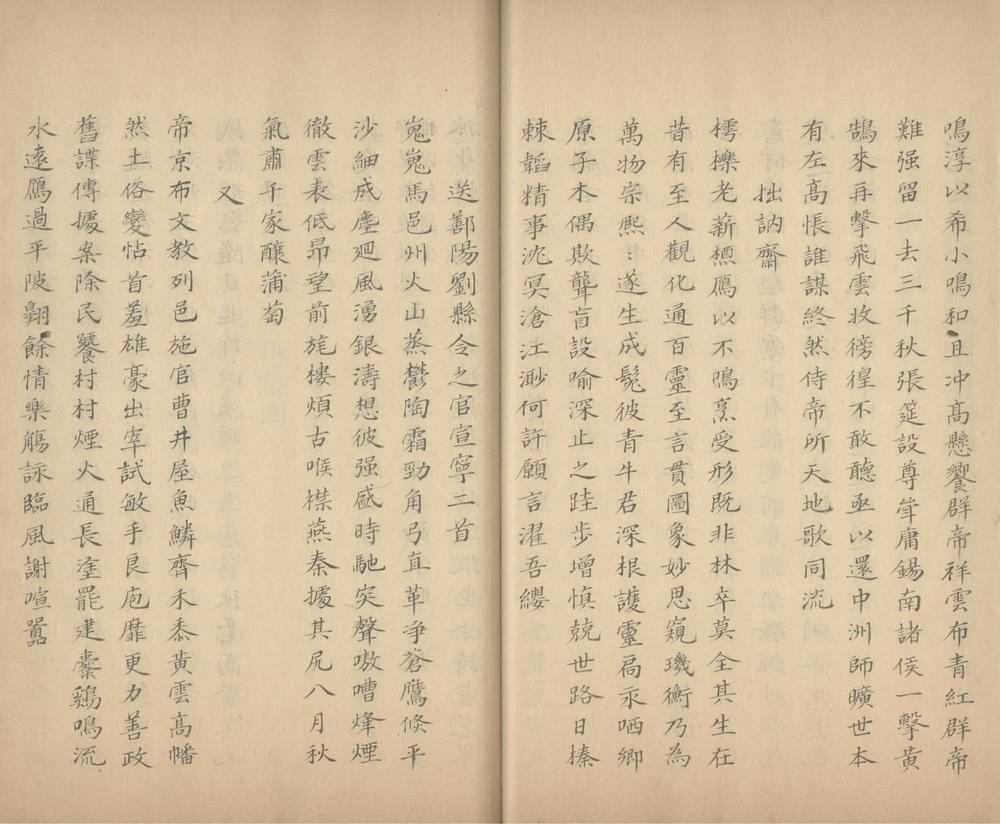 鳴淳以希小鳴和且冲高懸饗群帝祥雲布青紅群帝
難强留一去三千秋張筵設尊斝庸錫南諸侯一擊黃
鵠來再擊飛雲收徬徨不敢聽亟以還中洲師曠世本
有左高悵誰謀終然侍帝所天地歌同流
拙訥齋
樗櫟老薪槱鴈以不鳴烹受形既非林卒莫全其生在
昔有至人觀化通百靈至言貫圖象妙思窺璣衡乃為
萬物宗熈〻遂生成髡彼青牛君深根護靈扃汞哂卿
原子木偶欺聾盲設喻深止之跬步增慎兢世路日榛
棘韜精事沈冥滄江渺何許願言濯吾纓
送鄱陽劉縣令之官宣寧二首
嵬嵬馬邑州火山蒸鬱陶霜勁角弓直草浄蒼鷹倏平
沙細成塵廻風湧銀濤想彼强盛時馳突聲嗷嘈烽煙
徹雲表低昻望前旄樓煩古喉襟燕秦據其尻八月秋
氣肅千家釀蒲萄
又
帝京布文教列邑施官曹井屋魚鱗齊禾黍黃雲高幡
然土俗變怗首羞雄豪出宰試敏手良庖靡更刀善政
舊諜傳據案除民饕村村煙火通長塗罷建櫜鷄鳴流
水遠鴈過平陂翺餘情樂觴詠臨風謝喧囂